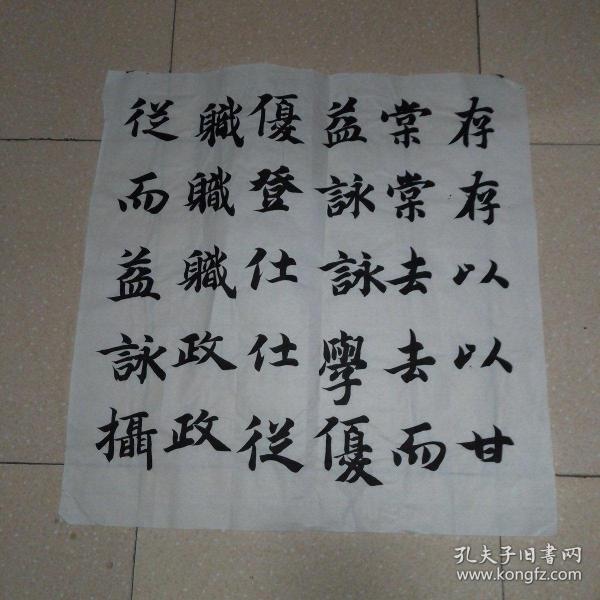 存存以以甘
棠棠去去而
益詠詠學優
優登仕仕從
職職職政政
從而益詠攝
孔夫子旧書网
www.kongfz.com